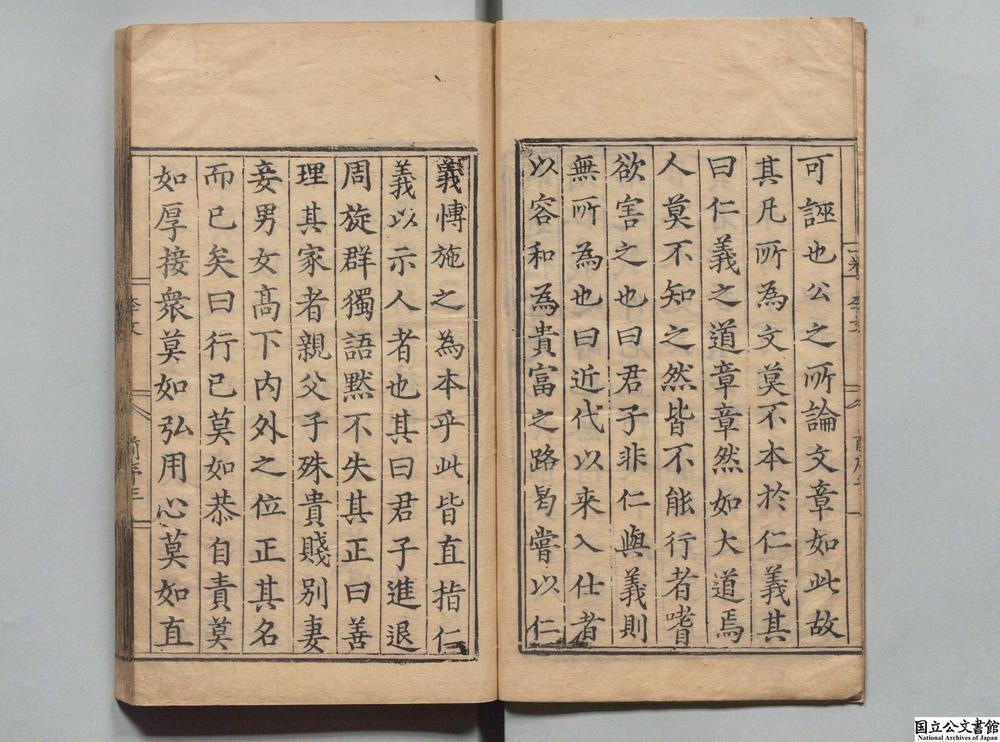 可誣也公之所論文章如此故
其凡所為文莫不本於仁義其
曰仁義之道章章然如大道焉
人莫不知之然皆不能行者嗜
欲害之也曰君子非仁與義則
無所為也曰近代以來入仕者
以容和為貴富之路曷嘗以仁
義慱施之為本乎此皆直指仁
義以示人者也其曰君子進退
周旋群獨語默不失其正曰善
理其家者親父子殊貴賤別妻
妾男女高下內外之位正其名
而已矣曰行己莫如恭自責莫
如厚接衆莫如弘用心莫如直
李文
前序三
国立公文書館
National Archives of Japan